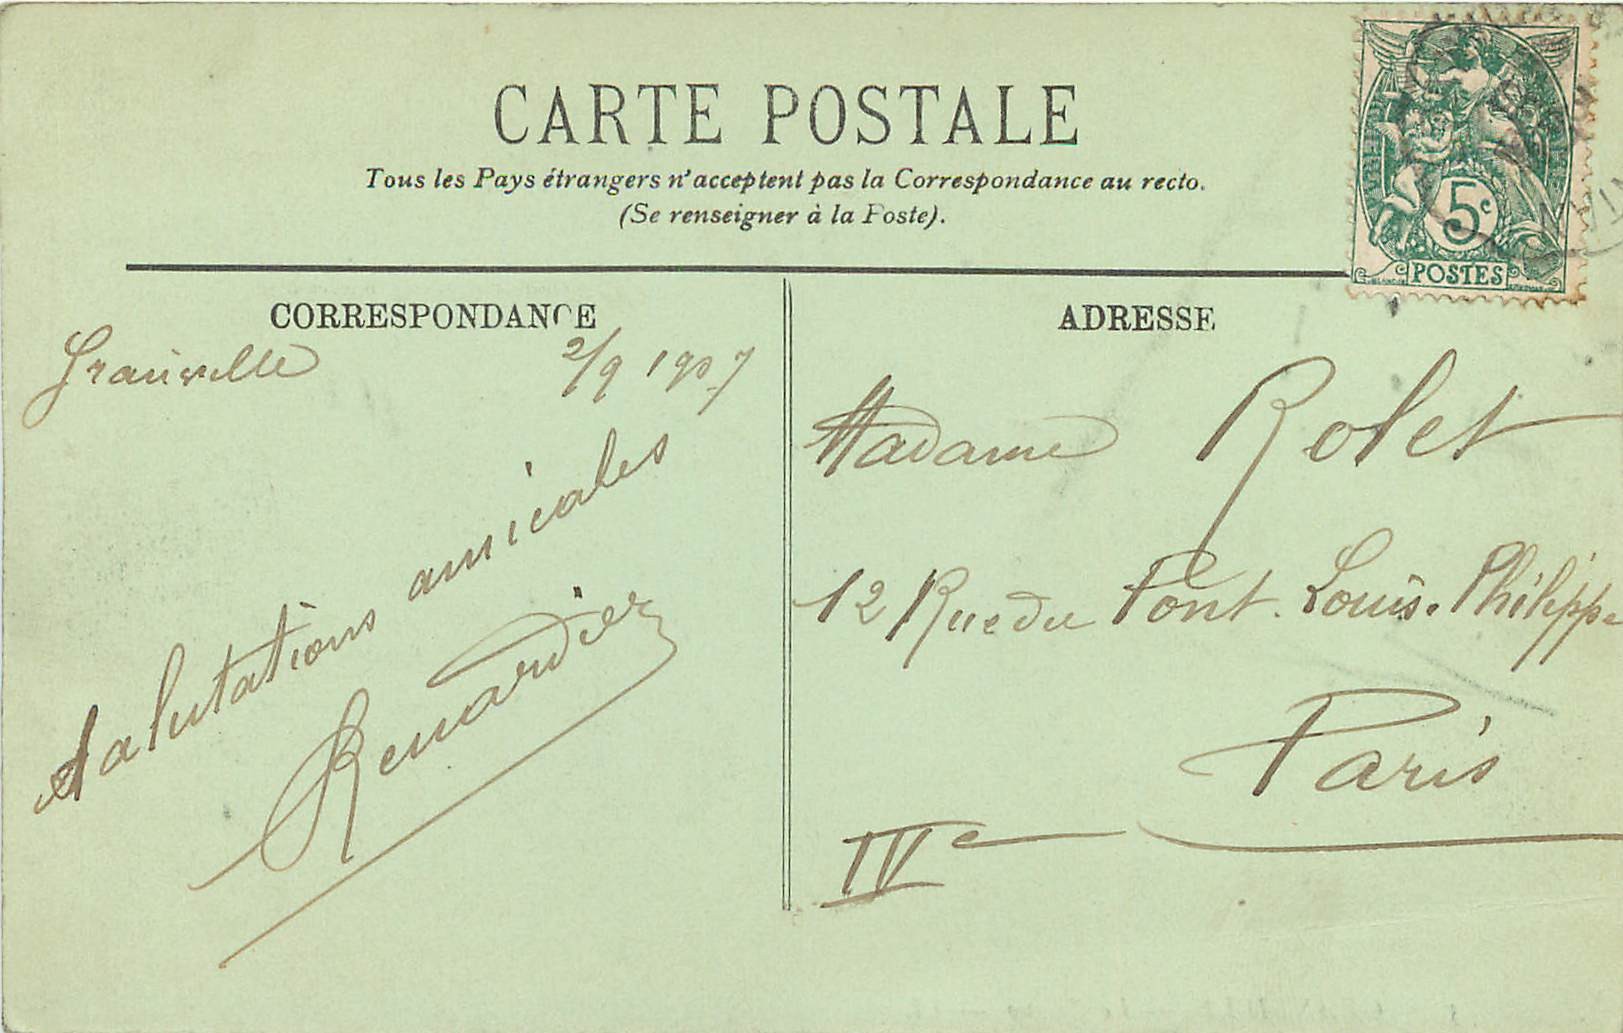 CARTE POSTALE
Tous les Pays étrangers n'acceptent pas la Correspondance au recto.
(Se renseigner à la Poste).
5c
POSTES
CORRESPONDANCE
Granville 2/9 1907
Salutations amicales
Renardier
ADRESSE
Madame Rolet
12 Rue du Pont. Louis. Philippe
Paris
IVe